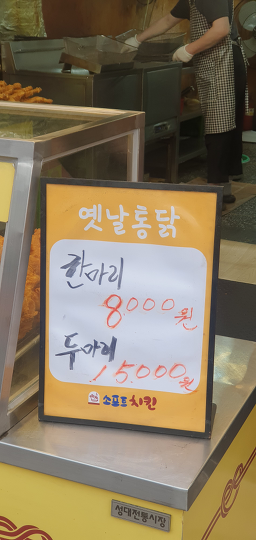 옛날통닭
한마리
8.000원
두마리
15.000원
소프트치킨
성대전통시장